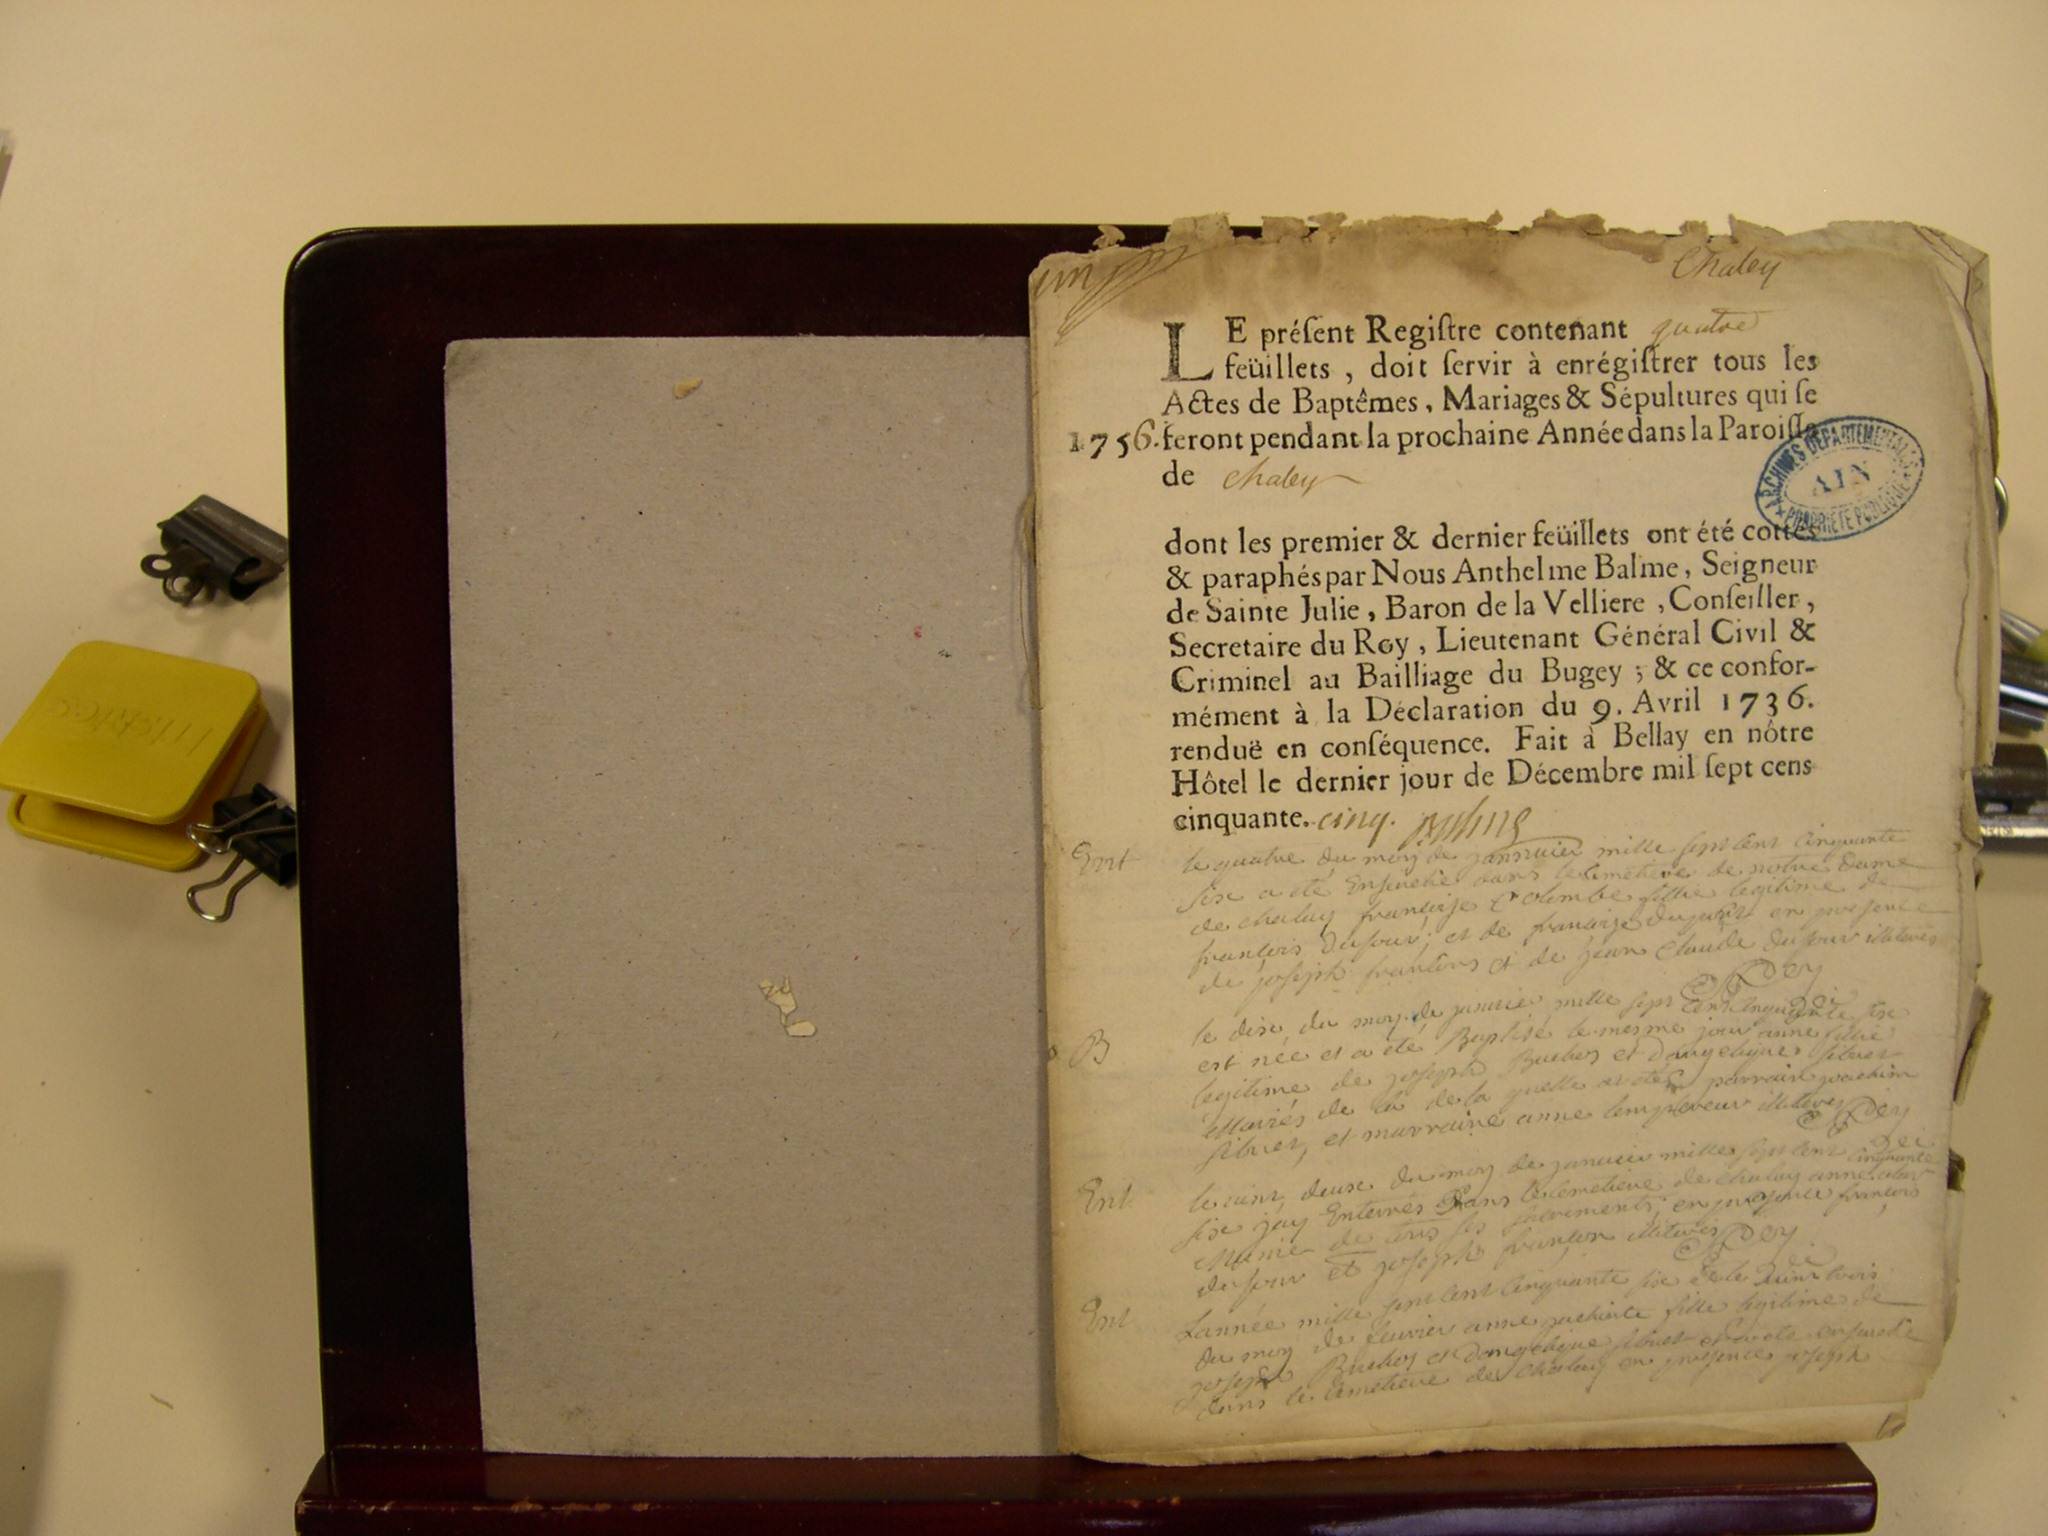 un
Chaley
LE préſent Regiſtre contenant quatre
feüillets, doit ſervir à enrégiſtrer tous les
Actes de Baptêmes, Mariages & Sépultures qui ſe
1756. feront pendant la prochaine Année dans la Paroiſſe
de chaley
ARCHIVES DÉPARTEMENTALES
AIN
PROPRIÉTÉ PUBLIQUE
dont les premier & dernier feüillets ont été cottés
& paraphés par Nous Anthelme Balme, Seigneur
de Sainte Julie, Baron de la Velliere, Conſeiller,
Secretaire du Roy, Lieutenant Général Civil &
Criminel au Bailliage du Bugey; & ce confor-
mément à la Déclaration du 9. Avril 1736.
renduë en conſéquence. Fait à Bellay en nôtre
Hôtel le dernier jour de Décembre mil ſept cens
cinquante. cinq.
Ent le quatre du moy de jannuier mille sept cent cinquante
sise a été Enseuelie dans le cimetiere de notre dame
de chaley françoise Colombe fillie legitime de
francois Dufour, et de francoise en presence
de joseph francons et de jean Claude dufour illiteres
Dey
B le dise du moy de januier mille sept cent cinquante sise
est née et a été Baptisé le mesme jour anne fillie
legitime de joseph Buehes et dangelique siluet
Mariés de la quelle a eté parrain joachim
siluet, et marraine anne illiteres Dey
Ent le uint deuse du moy de januier mille sept cent cinquante
sise jay Enterrés Dans le cemetiere de chaley anne
Munie de tous ses sacrements, en presence françois
dufour et joseph françon illiteres Dey
Ent Lannée mille sept cent cinquante sise et le uint trois
du moy de feurier anne fille legitime de
joseph Buehes et dangelique siluet a été enseuelie
dans le cemetiere de Chaley en presence joseph